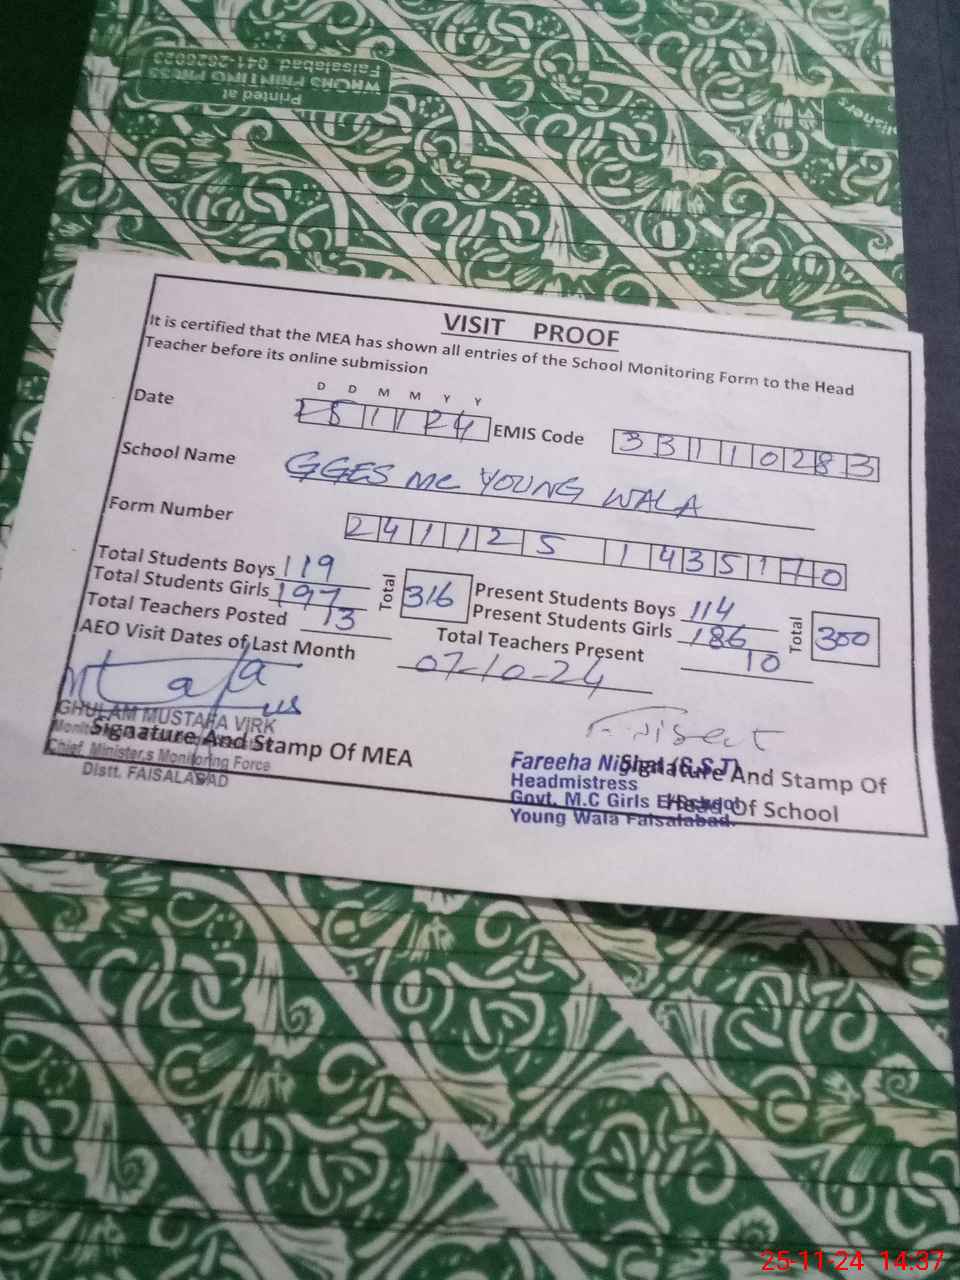 Printed at
WHOMS PRINTING PRESS
Faisalabad. 041-2626023
VISIT PROOF
It is certified that the MEA has shown all entries of the School Monitoring Form to the Head
Teacher before its online submission
D D M M Y Y
Date 25 11 24 EMIS Code 33110283
School Name GGES MC YOUNG WALA
Form Number 241125 1435170
Total Students Boys 119
Total Students Girls 197
Total 316
Present Students Boys 114
Present Students Girls 186
Total 300
Total Teachers Posted 13
Total Teachers Present 10
AEO Visit Dates of Last Month 07-10-24
GHULAM MUSTAFA VIRK
Chief Minister,s Monitoring Force
Distt. FAISALABAD
Signature And Stamp Of MEA
Fareeha Nighat (S.S.T)
Headmistress
Govt. M.C Girls E/School
Young Wala Faisalabad.
Signature And Stamp Of
Head Of School
25-11-24 14:37